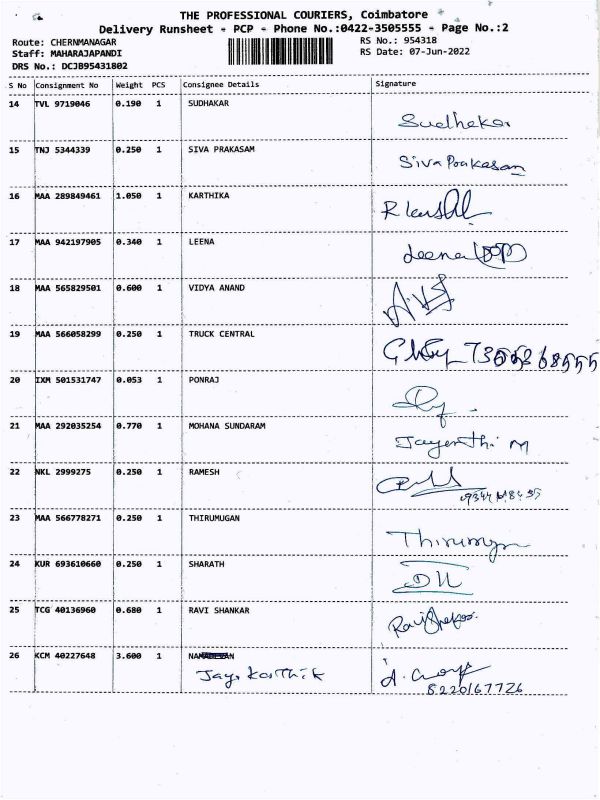 THE PROFESSIONAL COURIERS, Coimbatore
Delivery Runsheet - PCP - Phone No.:0422-3505555 - Page No.:2
Route: CHERNMANAGAR RS No.: 954318
Staff: MAHARAJAPANDI RS Date: 07-Jun-2022
DRS No.: DCJB95431802
S No Consignment No Weight PCS Consignee Details Signature
14 TVL 9719046 0.190 1 SUDHAKAR
Sudhakar
15 TNJ 5344339 0.250 1 SIVA PRAKASAM
Siva Prakasam
16 MAA 289849461 1.050 1 KARTHIKA
17 MAA 942197905 0.340 1 LEENA
Leena
18 MAA 565829501 0.600 1 VIDYA ANAND
19 MAA 566058299 0.250 1 TRUCK CENTRAL
20 IXM 501531747 0.053 1 PONRAJ
21 MAA 292035254 0.770 1 MOHANA SUNDARAM
Jayanthi M
22 NKL 2999275 0.250 1 RAMESH
23 MAA 566778271 0.250 1 THIRUMUGAN
Thirumugan
24 KUR 693610660 0.250 1 SHARATH
25 TCG 40136960 0.680 1 RAVI SHANKAR
26 KCM 40227648 3.600 1
Jaya Karthik
8220167726